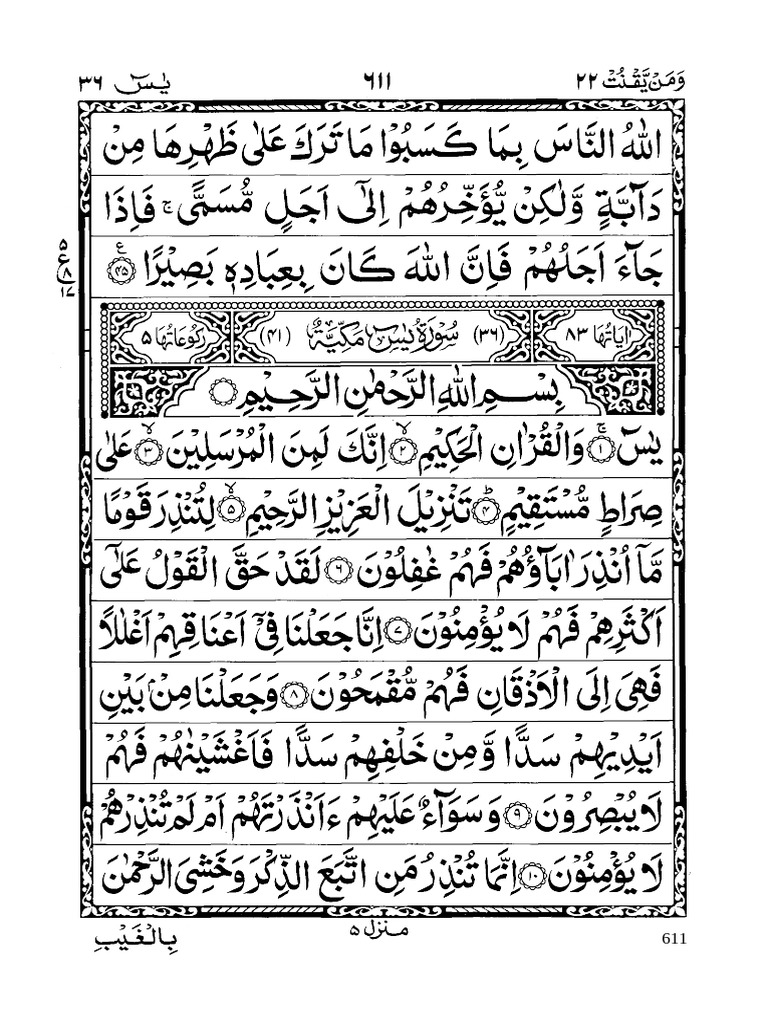 وَمَنْ يَّقْنُتْ ٢٢ ٦١١ يٰسٓ ٣٦
اللّٰهُ النَّاسَ بِمَا كَسَبُوْا مَا تَرَكَ عَلٰى ظَهْرِهَا مِنْ
دَآبَّةٍ وَّلٰكِنْ يُّؤَخِّرُهُمْ اِلٰٓى اَجَلٍ مُّسَمًّى ۚ فَاِذَا
جَآءَ اَجَلُهُمْ فَاِنَّ اللّٰهَ كَانَ بِعِبَادِهٖ بَصِيْرًا ﴿٤٥﴾
٥ ع ٨ ١٧
اٰيَاتُهَا ٨٣ (٣٦) سُوْرَةُ يٰسٓ مَكِّيَّةٌ (٤١) رُكُوْعَاتُهَا ٥
بِسْمِ اللّٰهِ الرَّحْمٰنِ الرَّحِيْمِ
يٰسٓ ۚ﴿١﴾ وَالْقُرْاٰنِ الْحَكِيْمِ ۙ﴿٢﴾ اِنَّكَ لَمِنَ الْمُرْسَلِيْنَ ۙ﴿٣﴾ عَلٰى
صِرَاطٍ مُّسْتَقِيْمٍ ؕ﴿٤﴾ تَنْزِيْلَ الْعَزِيْزِ الرَّحِيْمِ ۙ﴿٥﴾ لِتُنْذِرَ قَوْمًا
مَّاۤ اُنْذِرَ اٰبَآؤُهُمْ فَهُمْ غٰفِلُوْنَ ﴿٦﴾ لَقَدْ حَقَّ الْقَوْلُ عَلٰٓى
اَكْثَرِهِمْ فَهُمْ لَا يُؤْمِنُوْنَ ﴿٧﴾ اِنَّا جَعَلْنَا فِىْٓ اَعْنَاقِهِمْ اَغْلٰلًا
فَهِىَ اِلَى الْاَذْقَانِ فَهُمْ مُّقْمَحُوْنَ ﴿٨﴾ وَجَعَلْنَا مِنْۢ بَيْنِ
اَيْدِيْهِمْ سَدًّا وَّمِنْ خَلْفِهِمْ سَدًّا فَاَغْشَيْنٰهُمْ فَهُمْ
لَا يُبْصِرُوْنَ ﴿٩﴾ وَسَوَآءٌ عَلَيْهِمْ ءَاَنْذَرْتَهُمْ اَمْ لَمْ تُنْذِرْهُمْ
لَا يُؤْمِنُوْنَ ﴿١٠﴾ اِنَّمَا تُنْذِرُ مَنِ اتَّبَعَ الذِّكْرَ وَخَشِىَ الرَّحْمٰنَ
منزل ٥
بِالْغَيْبِ
611